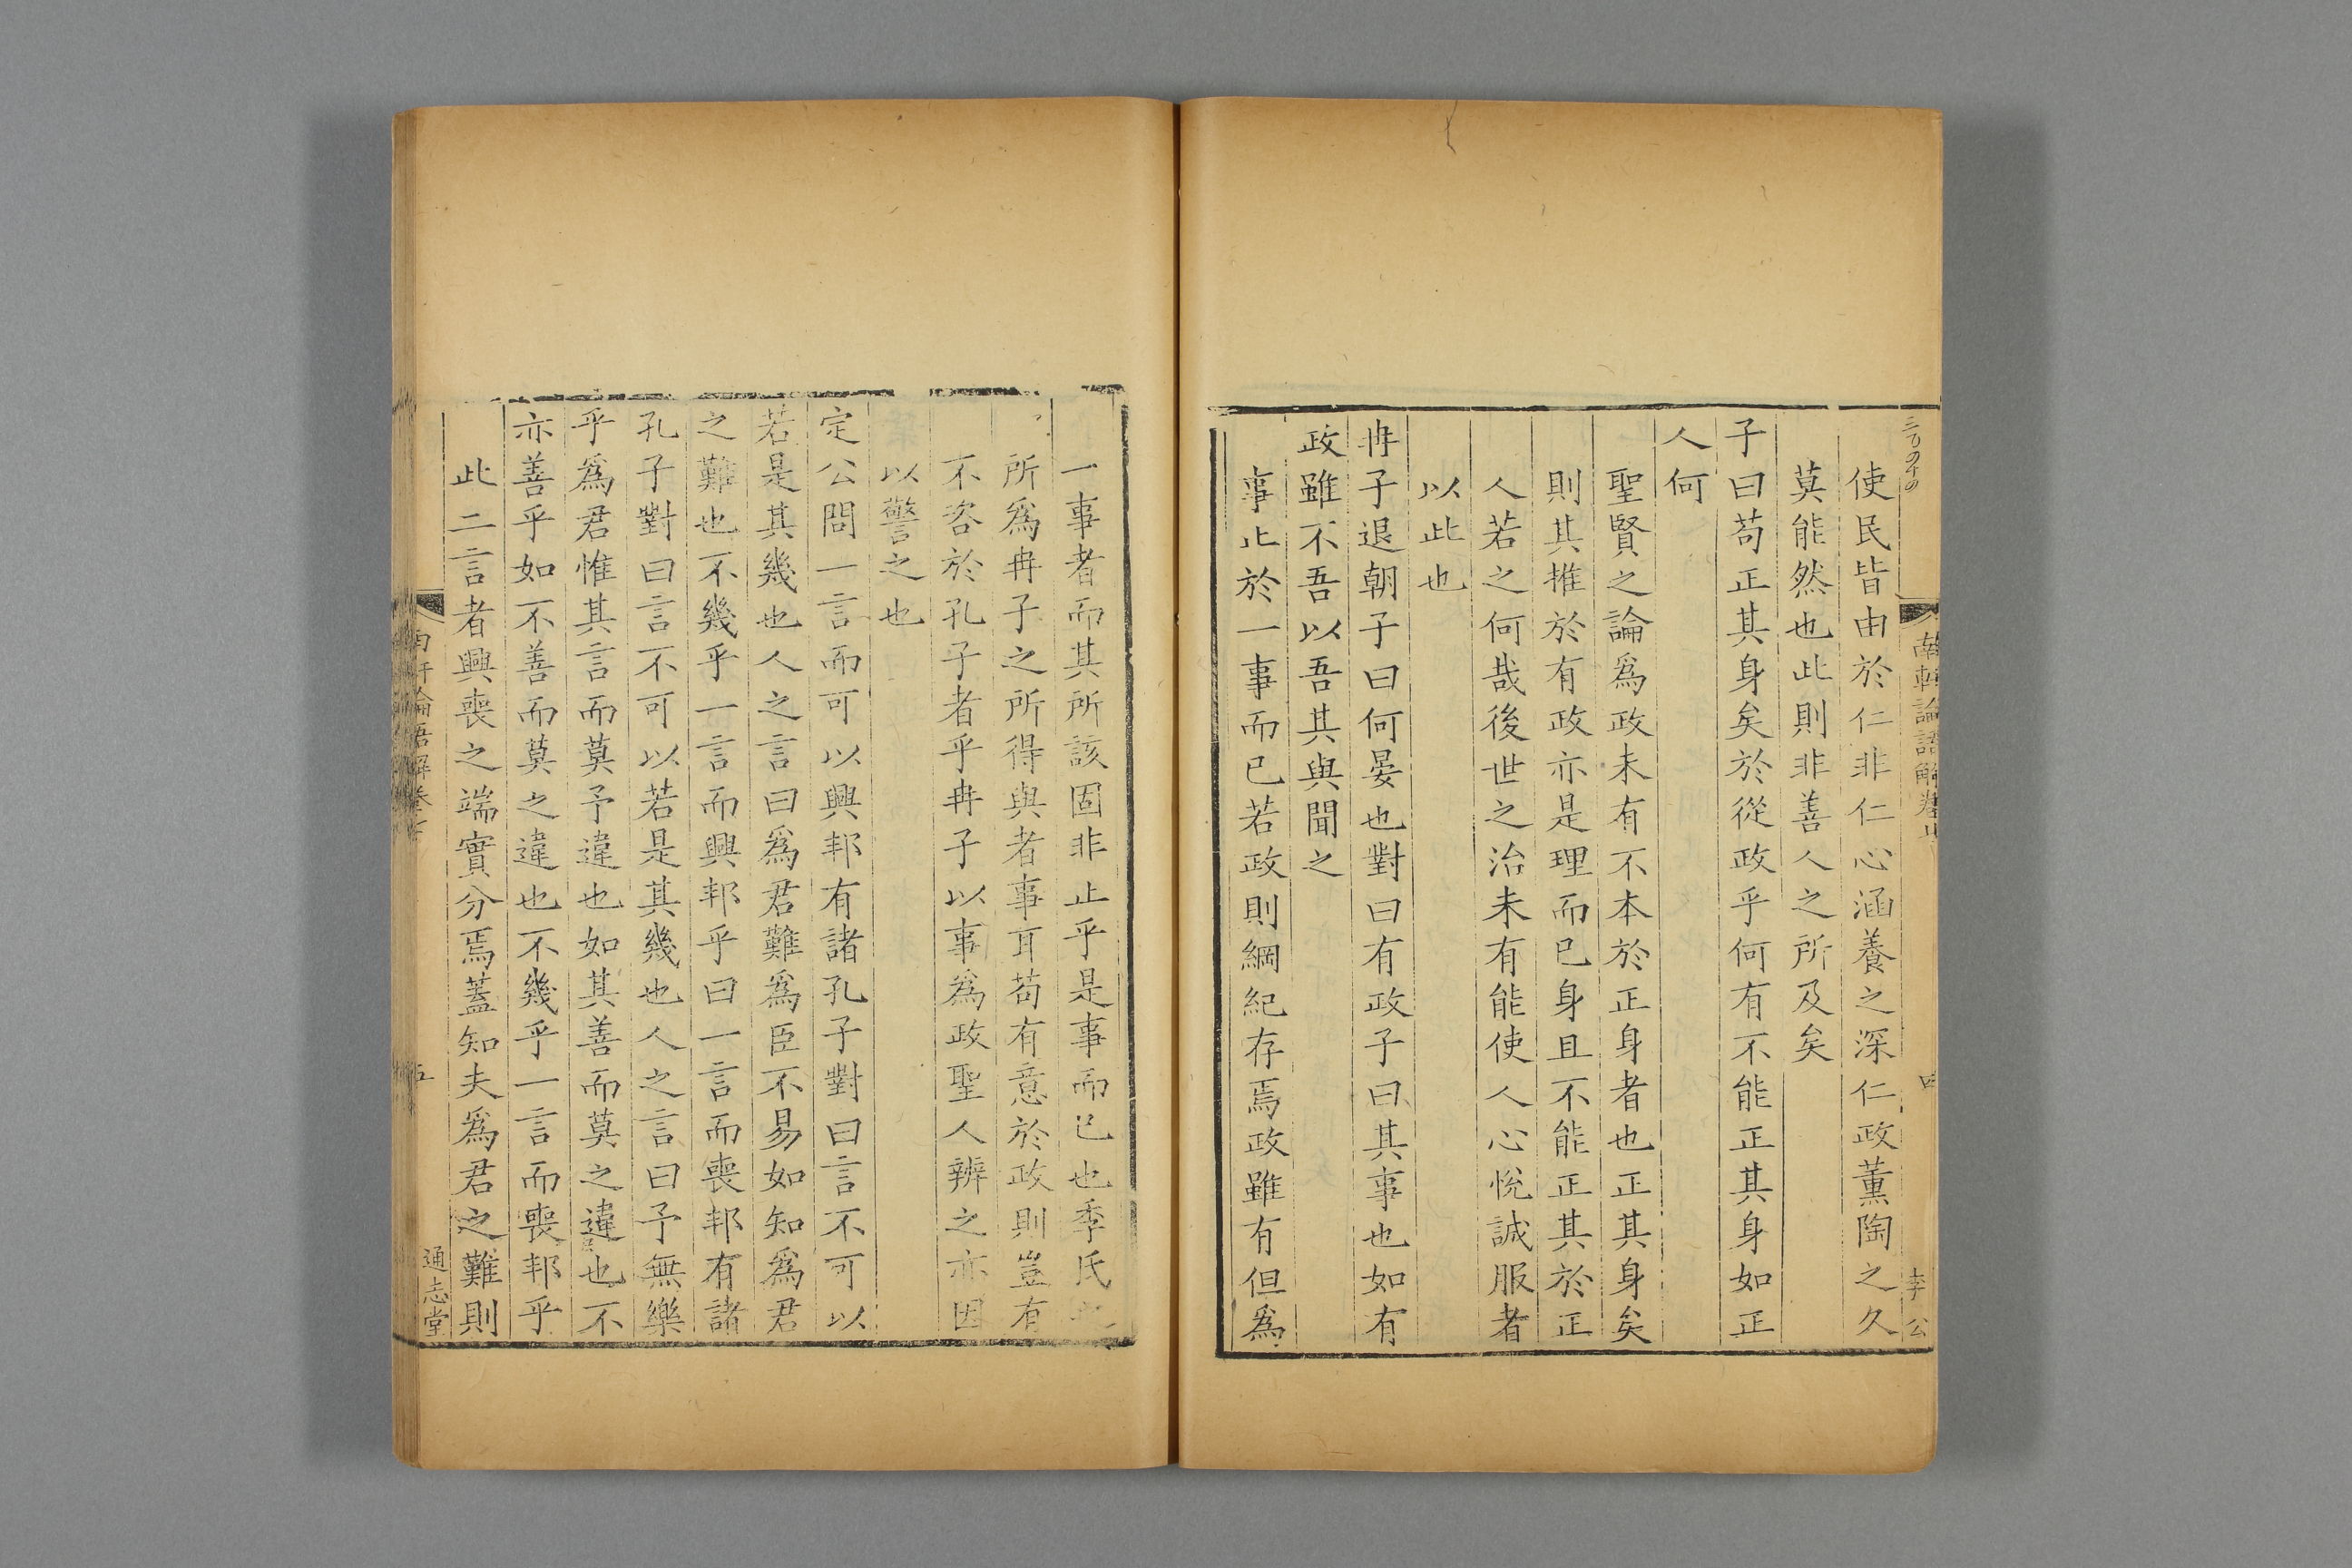 使民皆由於仁非仁心涵養之深仁政薰陶之久
莫能然也此則非善人之所及矣
子曰苟正其身矣於從政乎何有不能正其身如正
人何
聖賢之論爲政未有不本於正身者也正其身矣
則其推於有政亦是理而已身且不能正其於正
人若之何哉後世之治未有能使人心悅誠服者
以此也
冉子退朝子曰何晏也對曰有政子曰其事也如有
政雖不吾以吾其與聞之
事止於一事而已若政則綱紀存焉政雖有但爲
一事者而其所該固非止乎是事而已也季氏之
所爲冉子之所得與者事耳苟有意於政則豈有
不咨於孔子者乎冉子以事爲政聖人辨之亦因
以警之也
定公問一言而可以興邦有諸孔子對曰言不可以
若是其幾也人之言曰爲君難爲臣不易如知爲君
之難也不幾乎一言而興邦乎曰一言而喪邦有諸
孔子對曰言不可以若是其幾也人之言曰予無樂
乎爲君惟其言而莫予違也如其善而莫之違也不
亦善乎如不善而莫之違也不幾乎一言而喪邦乎
此二言者興喪之端實分焉蓋知夫爲君之難則
南軒論語解卷七
五
通志堂